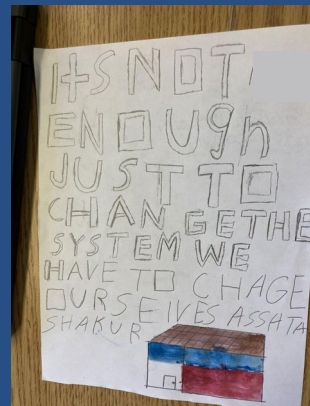 ItS NOT
ENOUgh
JUST TO
CHANGETHE
SYSTEM WE
HAVE TO CHAGE
OURSElVES ASSATA
SHAKUR